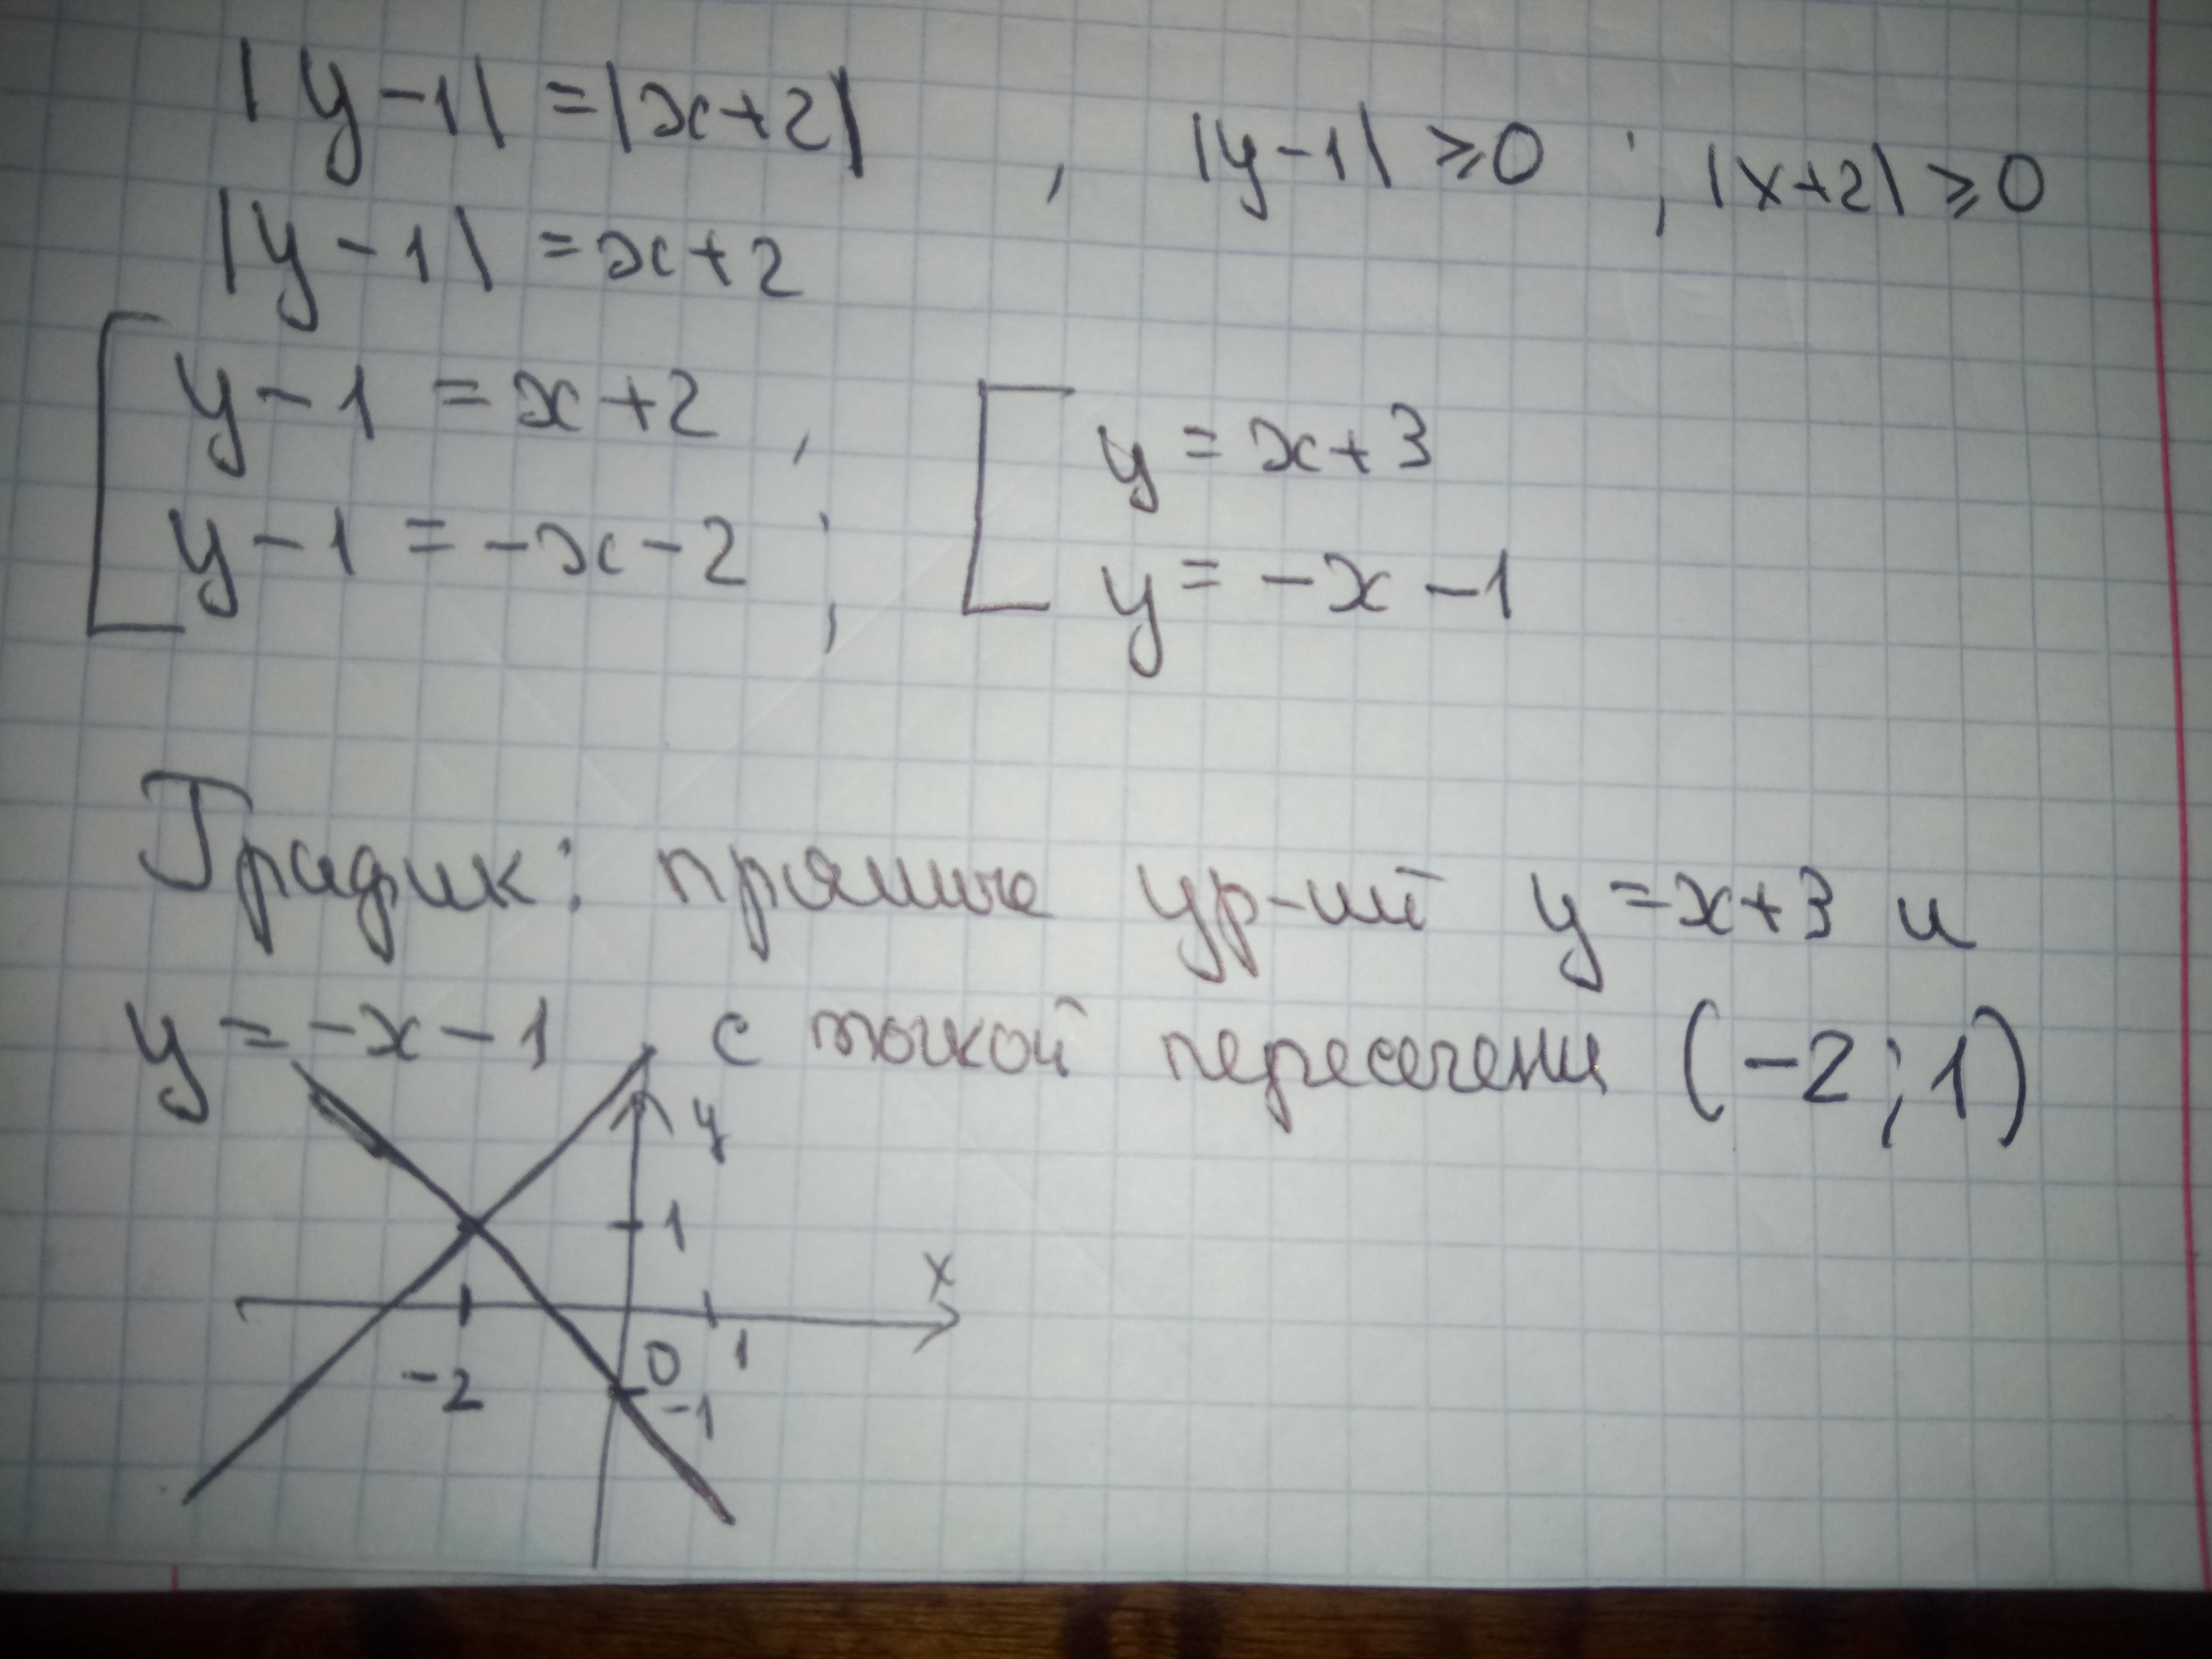 |y-1| =|x+2| , |y-1| ≥0 ; |x+2| ≥0
|y-1| =x+2
y-1 = x+2 , y = x+3
y-1 = -x-2 ; y = -x-1
График: прямые ур-ий y=x+3 и
y = -x-1 с точкой пересечени (-2;1)
y
1
x
-2 0 1
-1